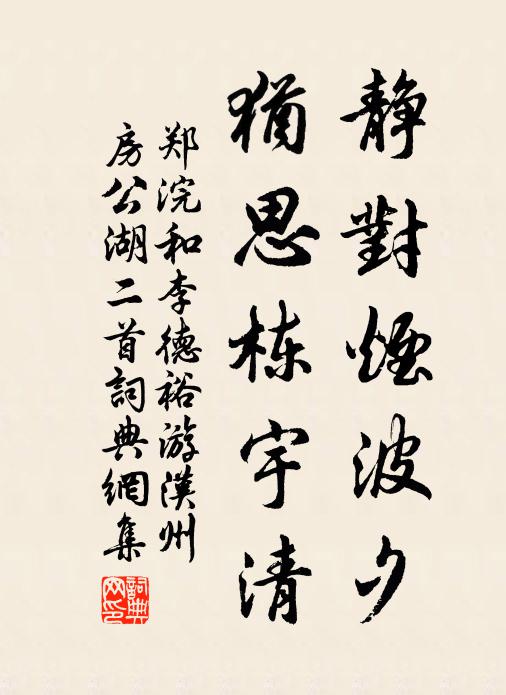 静對煙波夕
猶思栋宇清
郑浣和李德裕游漢州
房公湖二首詞典網集
詞典网印